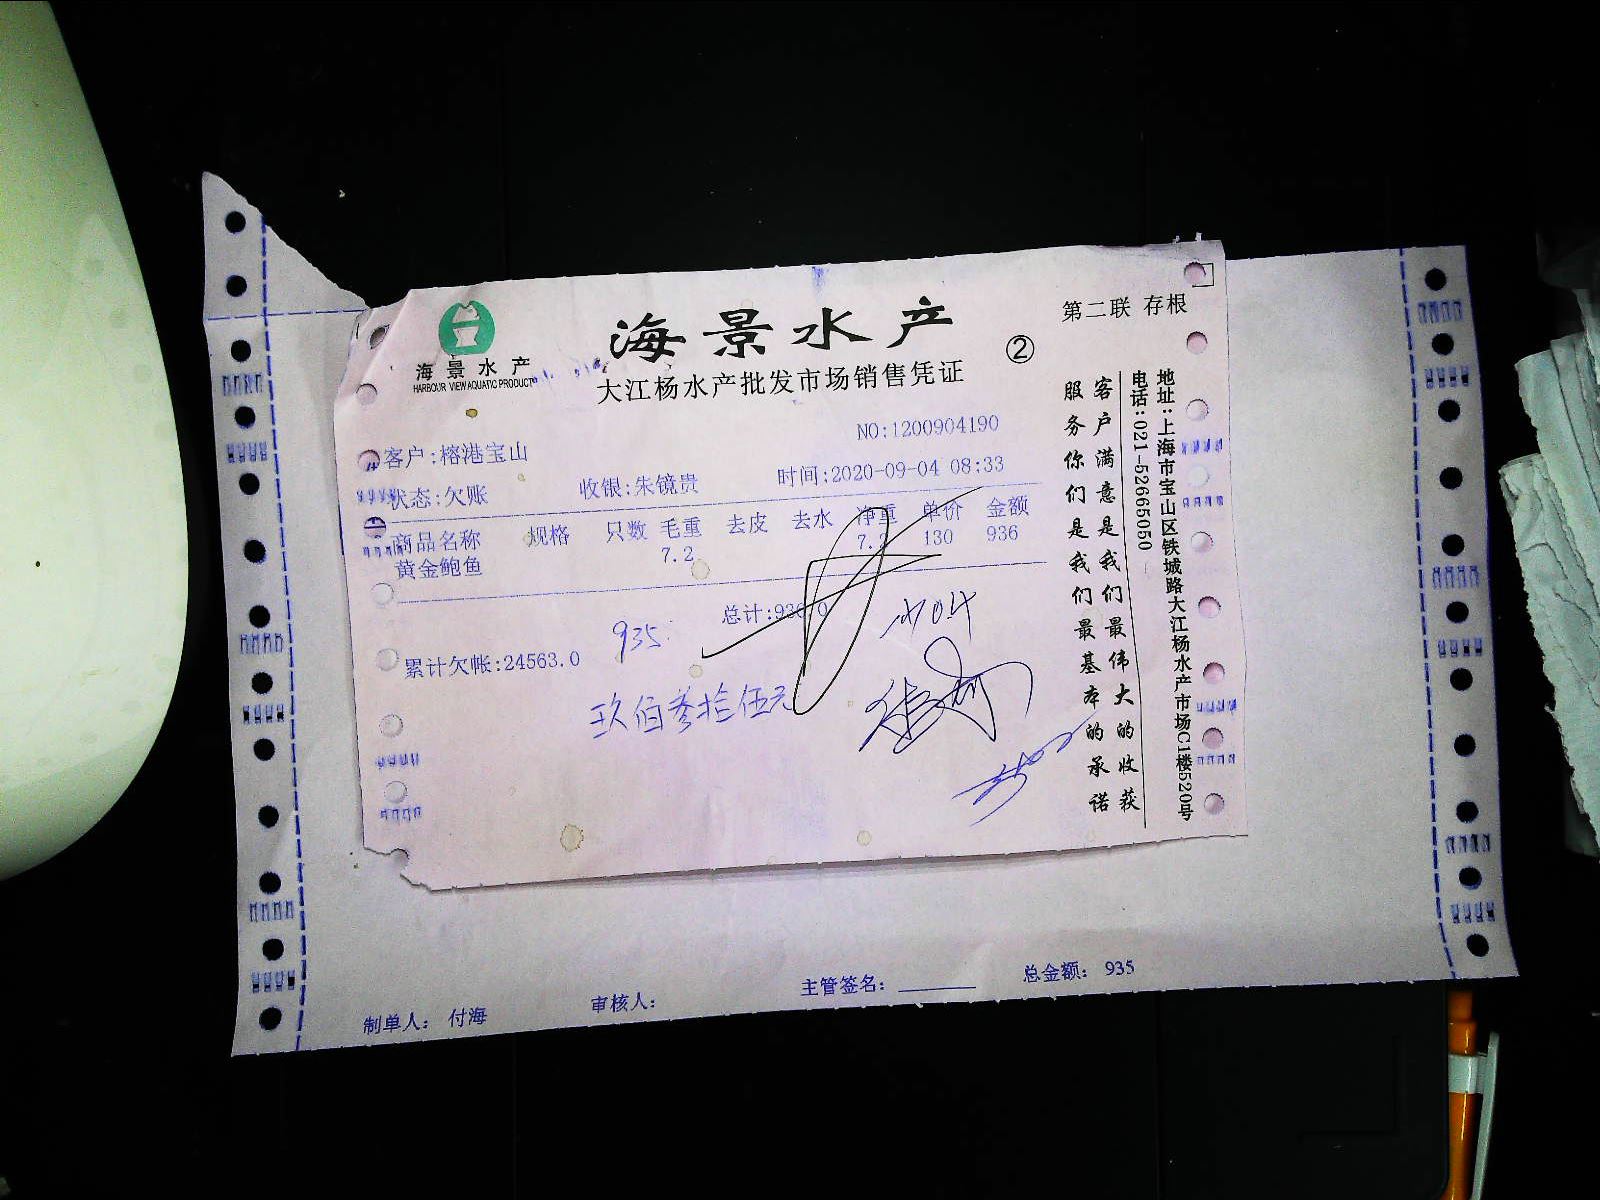 海景水产
HARBOUR VIEW AQUATIC PRODUCT
海景水产
大江杨水产批发市场销售凭证
②
第二联 存根
NO:1200904190
客户:榕港宝山
状态:欠账 收银:朱镜贵 时间:2020-09-04 08:33
商品名称 规格 只数 毛重 去皮 去水 净重 单价 金额
黄金鲍鱼 7.2 7.2 130 936
总计:936.0
累计欠帐:24563.0
935
玖佰叁拾伍元
地址:上海市宝山区铁城路大江杨水产市场C1楼520号
电话:021-52665050
客户满意是我们最伟大的收获
服务你们是我们最基本的承诺
制单人: 付海 审核人: 主管签名: 总金额: 935